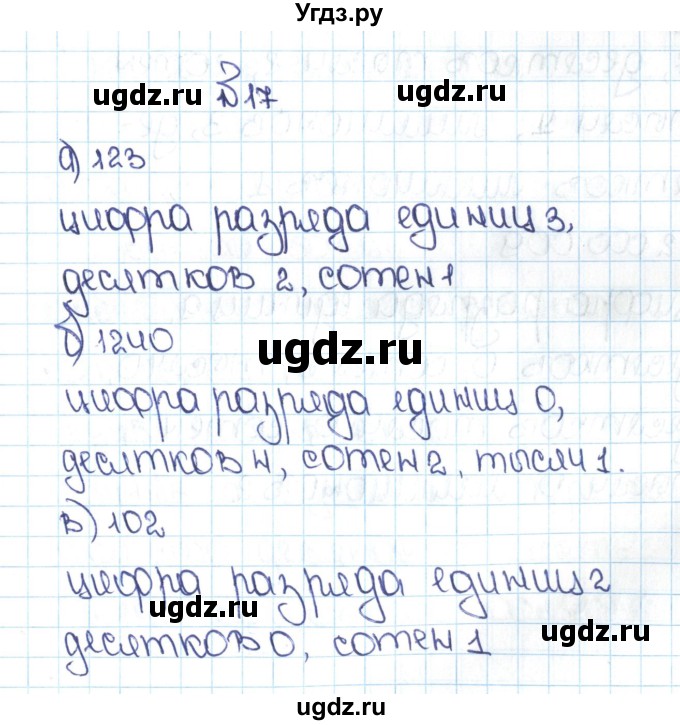 Угдз.ру
ugdz.ru №17 ugdz.ru
а) 123
цифра разряда единиц 3,
десятков 2, сотен 1
б) 1240
ugdz.ru
цифра разряда единиц 0,
десятков 4, сотен 2, тысяч 1.
в) 102
цифра разряда единиц 2
ugdz.ru
ugdz.ru
десятков 0, сотен 1
ugdz.ru